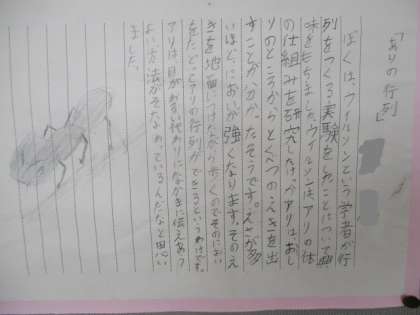 「ありの行列」
ぼくは、ウイルソンという学者が行
列をつくる実験をしたことについて興
味をもちました。ウイルソンは、アリの体
の仕組みを研究した。アリは、おし
りのところからとくべつのえきを出
すことが分かったそうです。えさが多
いほど、においが強くなります。そのえ
きを地面につけながら歩くのでそのにおい
をたどってアリの行列ができるというわけです。
アリは目がわるい代わりになかまに伝えあう
よい方法がそなわっているんだなと思い
ました。